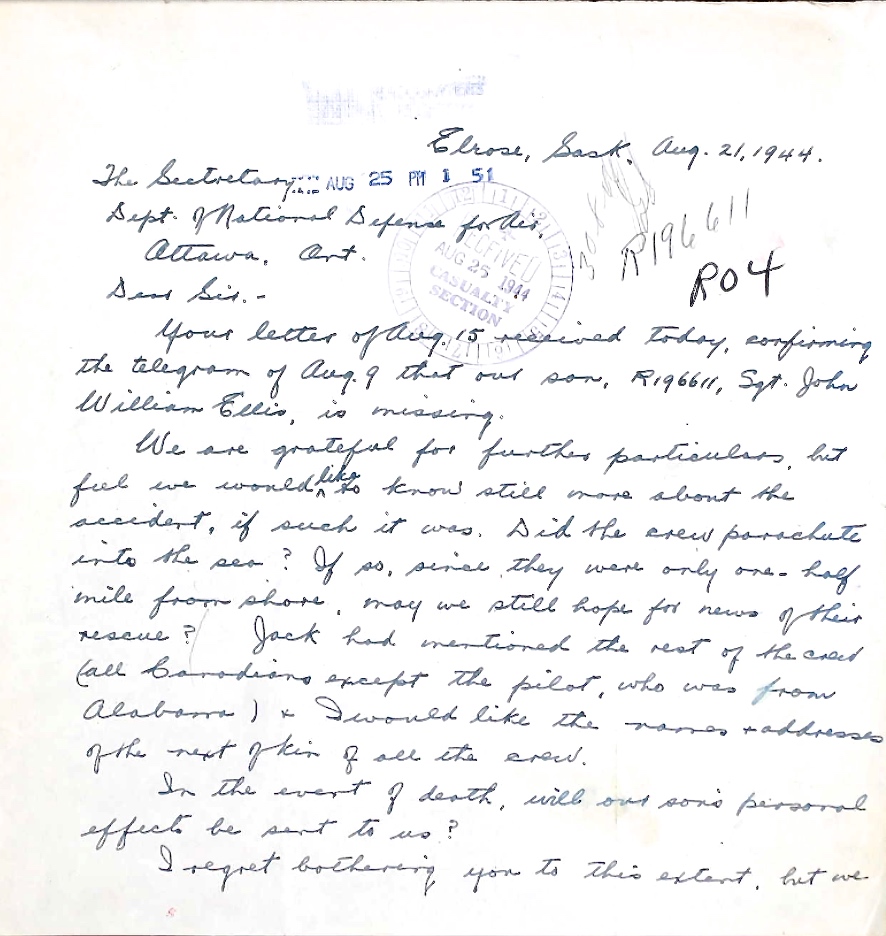 Elrose, Sask. Aug. 21, 1944.
The Sectretary,
AUG 25 PM 1 51
Dept. of National Defense for Air,
Ottawa, Ont.
RECEIVED
AUG 25 1944
CASUALTY
SECTION
R196611
R04
Dear Sir.-
Your letter of Aug. 15 received today, confirming
the telegram of Aug. 9 that our son, R196611, Sgt. John
William Ellis, is missing.
We are grateful for further particulars, but
feel we would like to know still more about the
accident, if such it was. Did the crew parachute
into the sea? If so, since they were only one-half
mile from shore, may we still hope for news of their
rescue? Jack had mentioned the rest of the crew
(all Canadians except the pilot, who was from
Alabama) & I would like the names & addresses
of the next of kin of all the crew.
In the event of death, will our son's personal
effects be sent to us?
I regret bothering you to this extent, but we